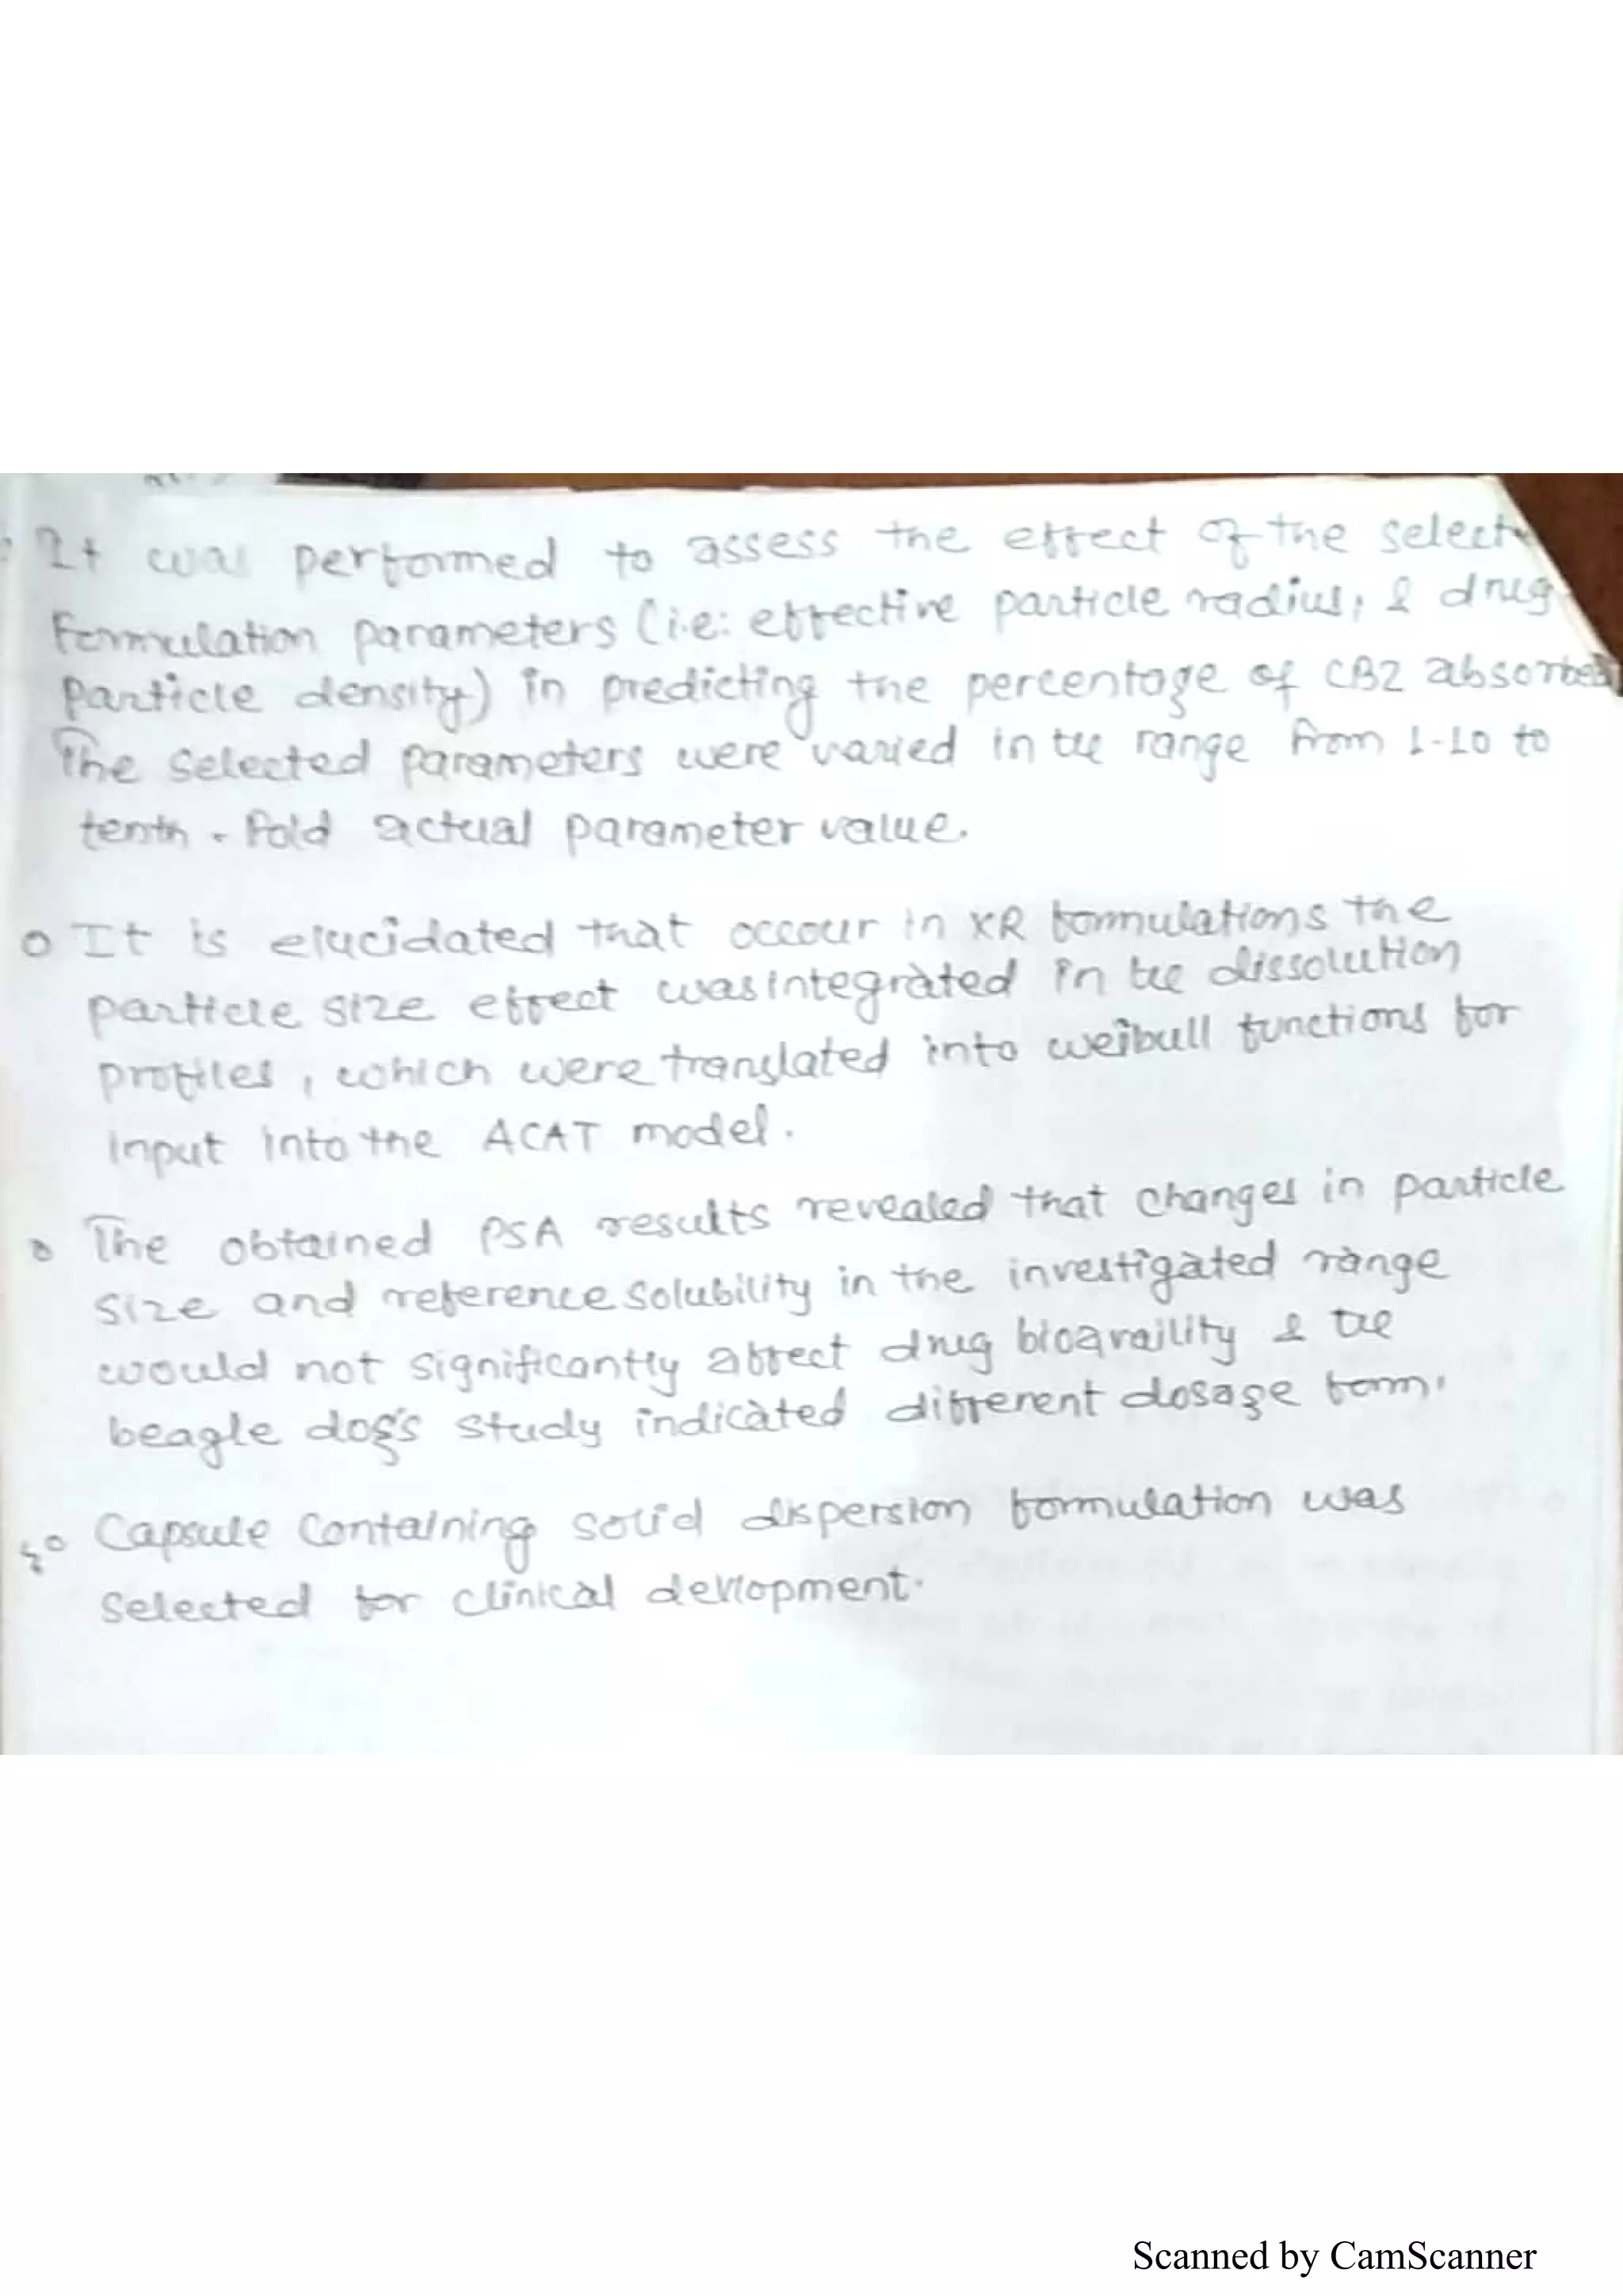 It was performed to assess the effect of the select
Formulation parameters (i.e: effective particle radius, & drug
particle density) in predicting the percentage of CBZ absorbed
The selected parameters were varied in the range from 1-10 to
tenth - fold actual parameter value.
o It is elucidated that occour in XR formulations the
particle size effect was integrated in the dissolution
profiles, which were translated into weibull functions for
input into the ACAT model.
o The obtained PSA results revealed that changes in particle
size and reference solubility in the investigated range
would not significantly affect drug bioavaility & the
beagle dog's study indicated different dosage form.
o Capsule Containing solid dispersion formulation was
selected for clinical devlopment.
Scanned by CamScanner